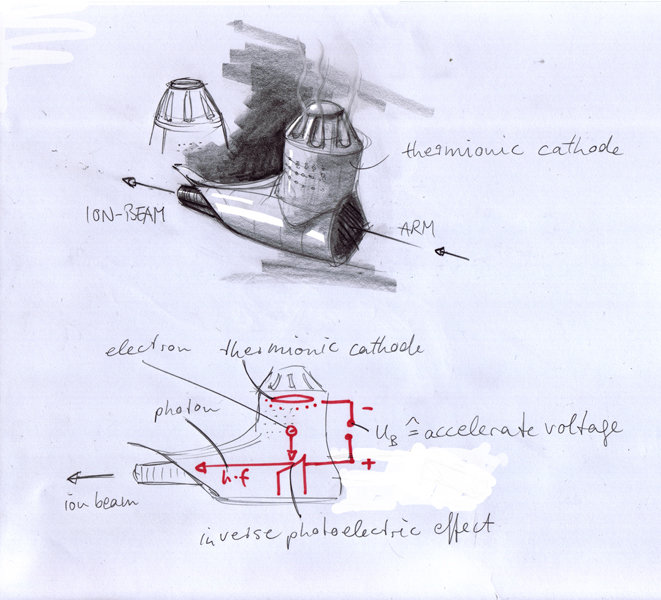 thermionic cathode
ION-BEAM
ARM
electron thermionic cathode
photon
-
U_B ≙ accelerate voltage
+
h·f
ion beam
inverse photoelectric effect